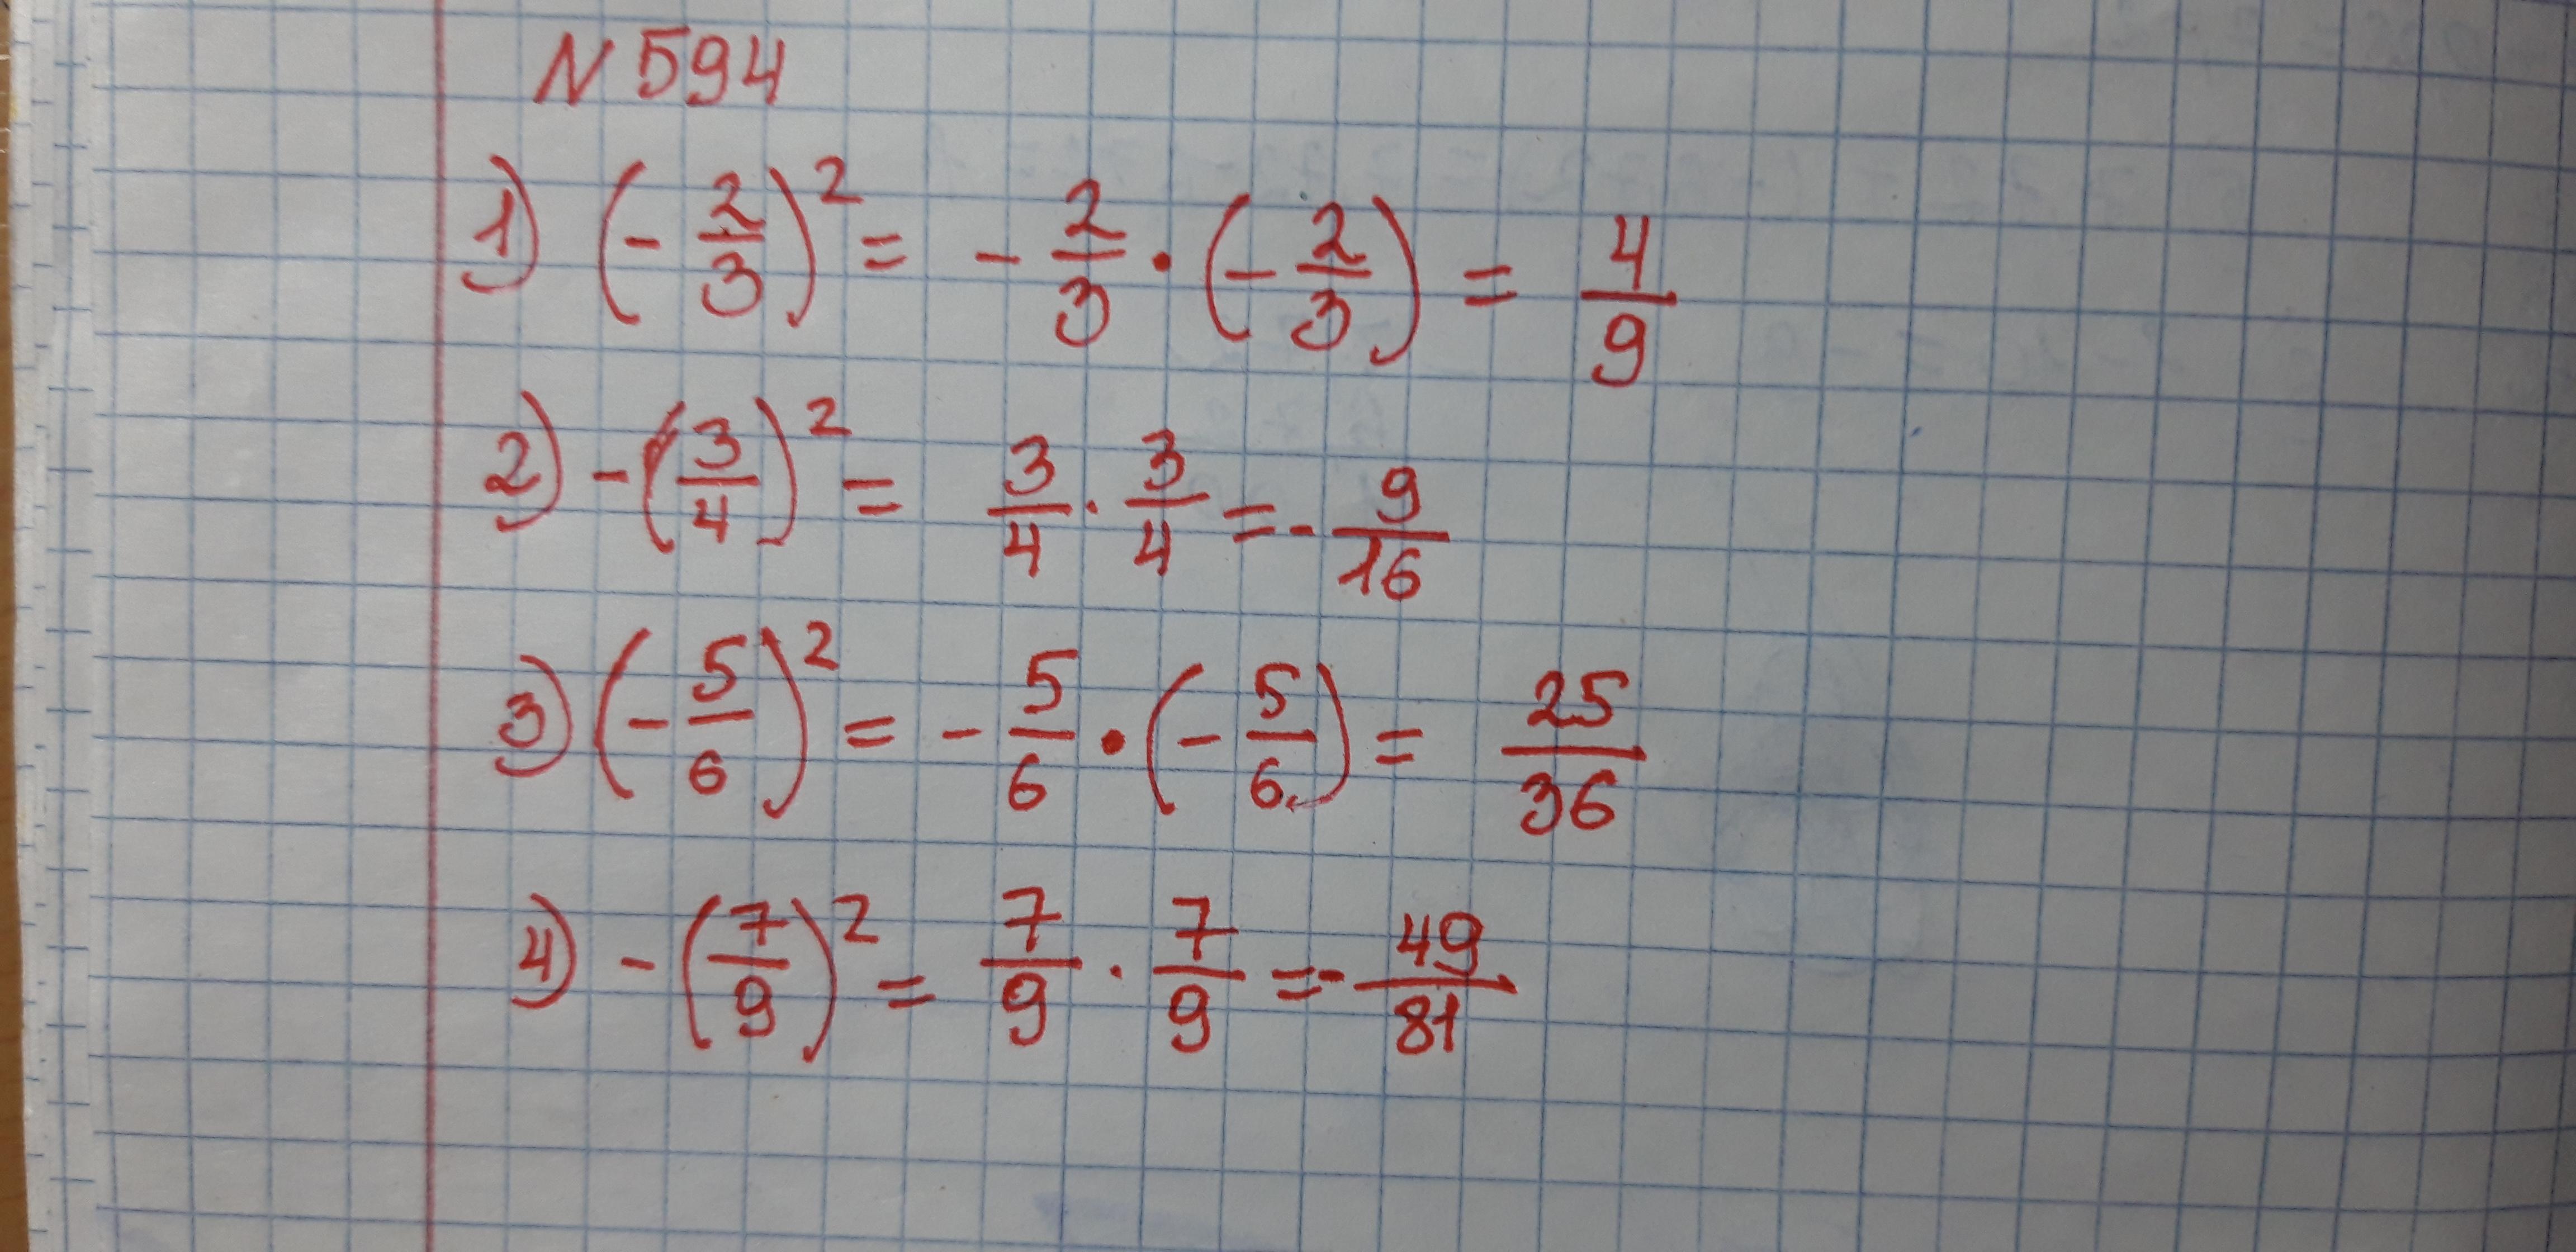 N 594
1) (- 2/3)² = - 2/3 · (- 2/3) = 4/9
2) -(3/4)² = 3/4 · 3/4 = - 9/16
3) (- 5/6)² = - 5/6 · (- 5/6) = 25/36
4) - (7/9)² = 7/9 · 7/9 = - 49/81